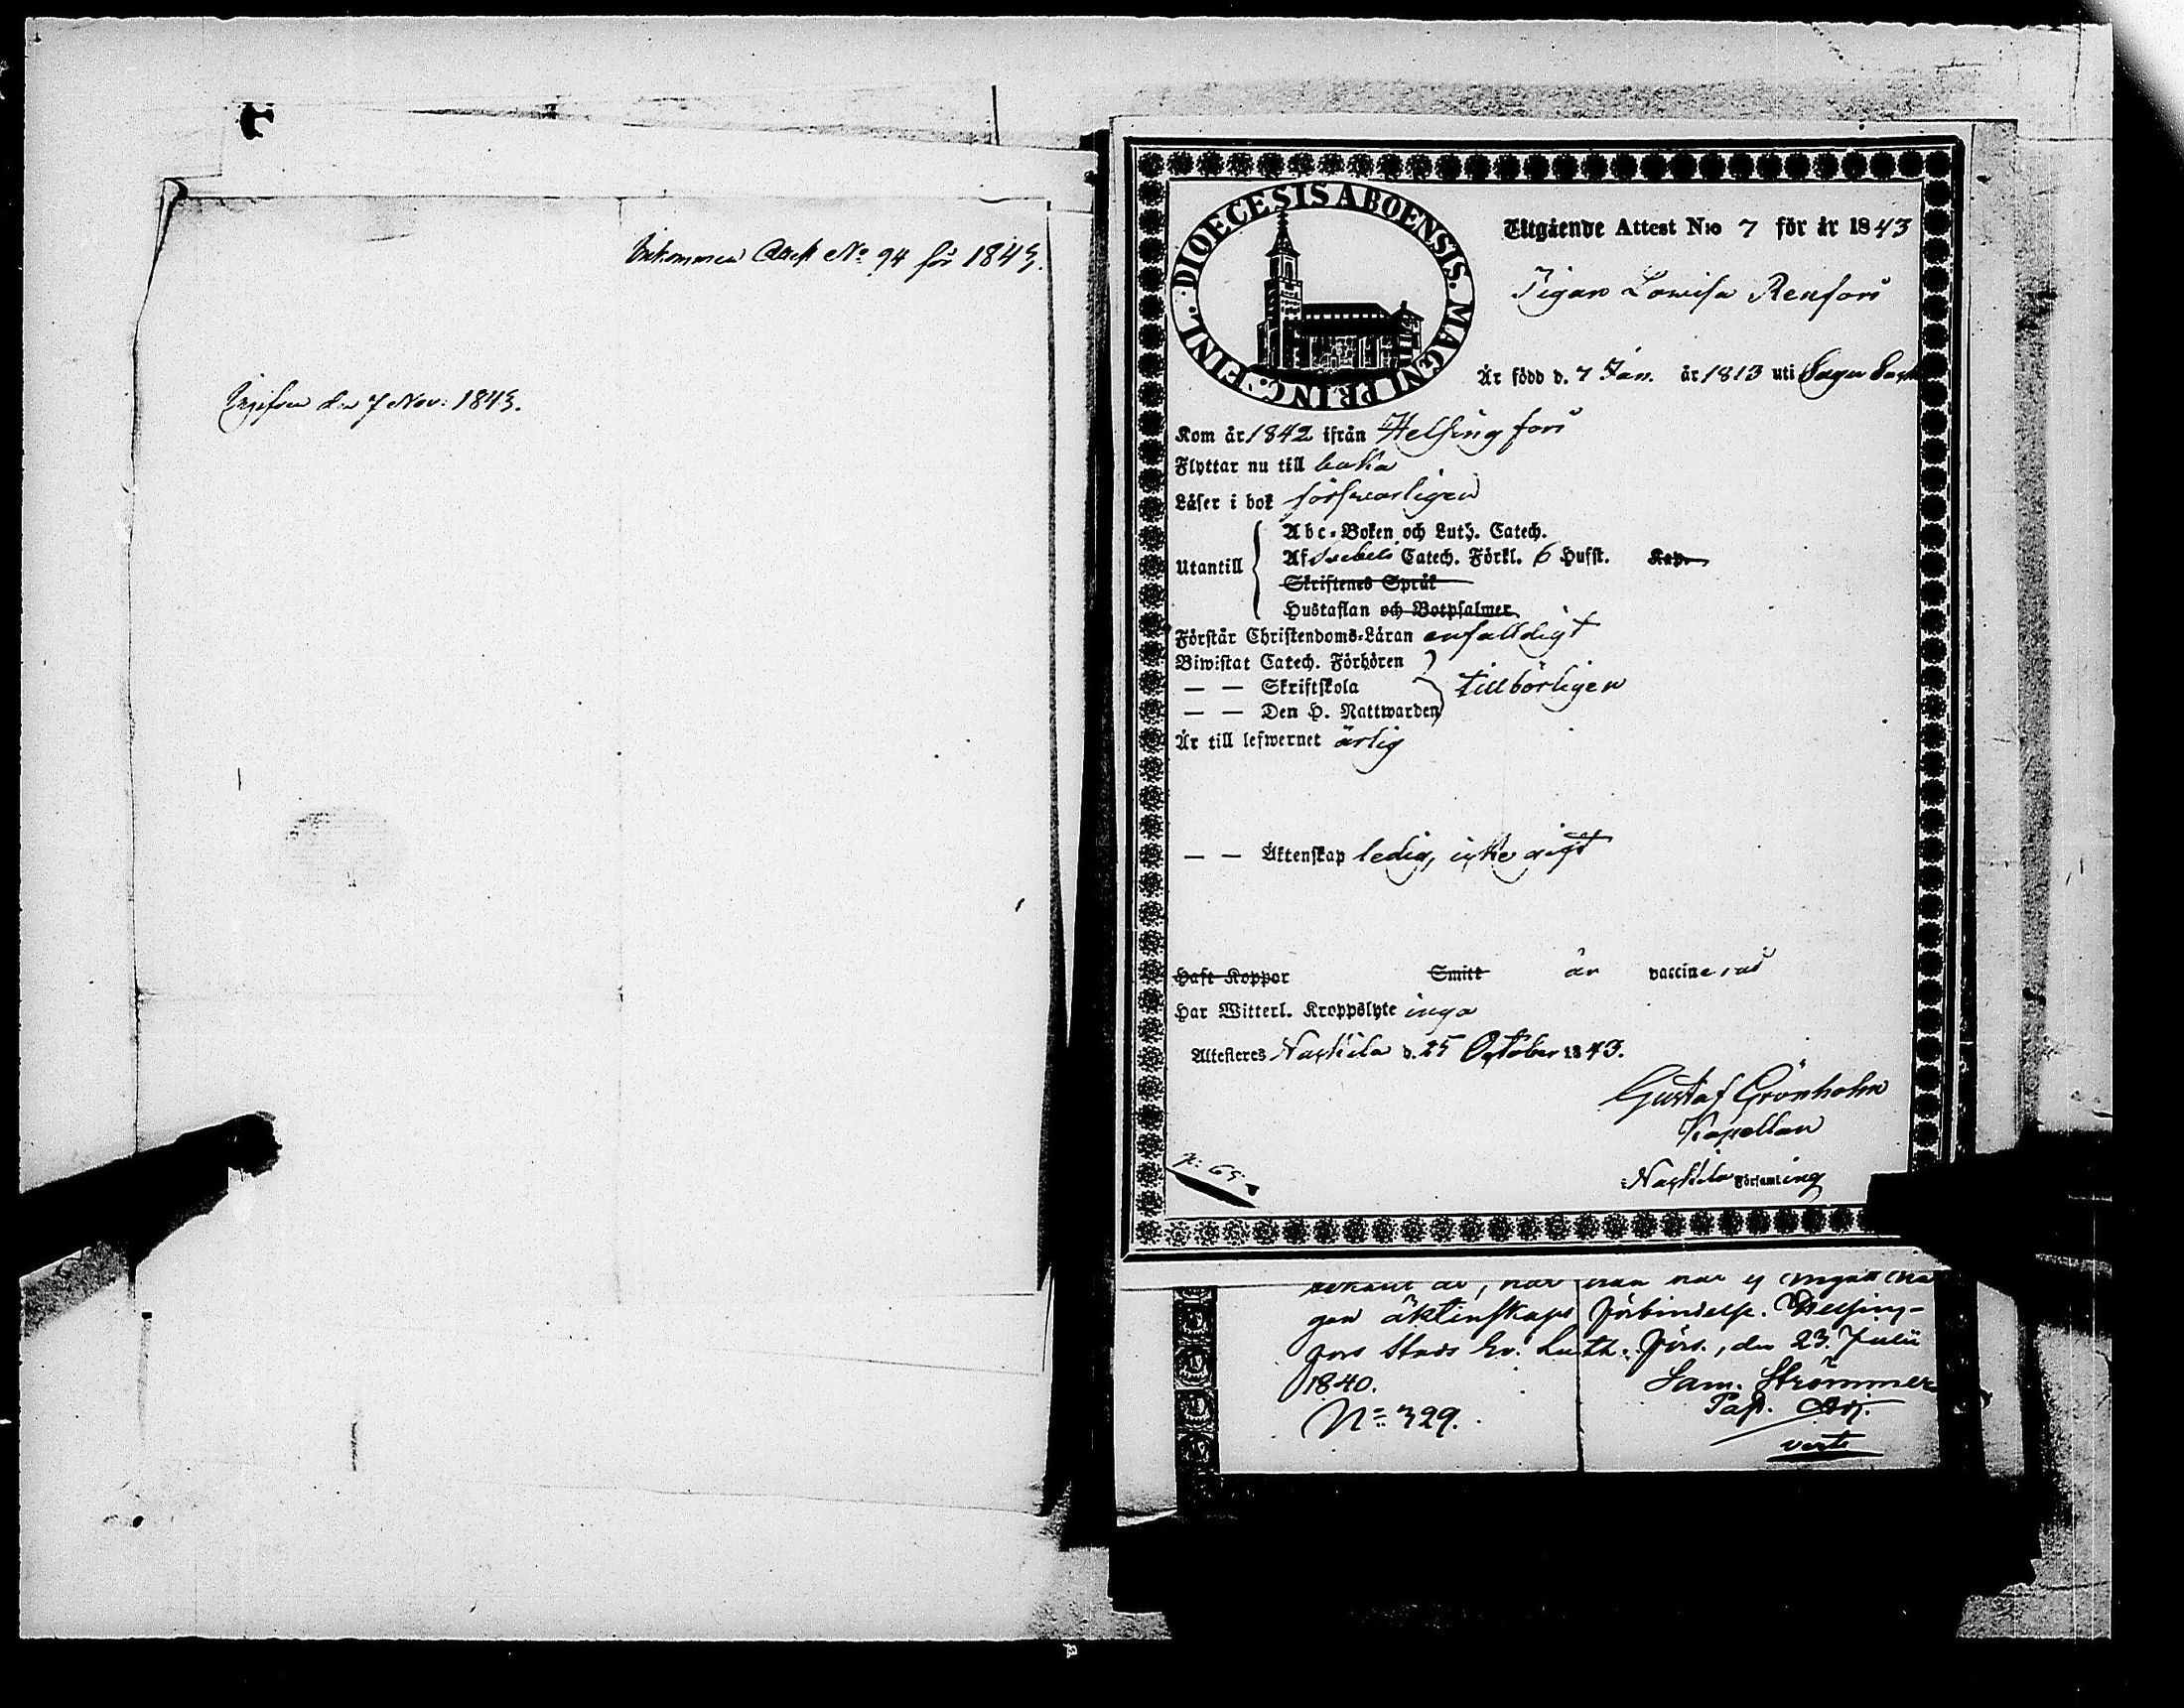 Inkommen Attest No 94 för 1843.
Ingifven den 7 Nov: 1843.
DIOECESIS ABOENSIS. MAGNI PRINC. FINL.
Utgående Attest N:o 7 för år 1843
Pigan Lowisa Renfors
Är född d. 7 Jan. år 1813 uti
Kom år 1842 ifrån Helsingfors
Flyttar nu till baka
Läser i bok försvarligen
Utantill
Abc-Boken och Luth. Catech.
Af Svebeli Catech. Förkl. 6 Hufst. Kap.
Skriftenes Språk
Hustaflan och Botpsalmer
Förstår Christendoms-Läran enfalldigt
Biwistat Catech. Förhören
— — Skriftskola tillbörligen
— — Den H. Nattwarden
Är till lefwernet ärlig
— — Äktenskap ledig, icke gift
Haft Koppor Smitt är vaccinerad
Har Witterl. Kroppslyte inga
Attesteres Naskila d. 25 October 1843.
Gustaf Grönholm
Kapellan
Naskila Församling
p: 65
gen äktenskaps förbindelse. Helsing-
fors Stads Ev. Luth. förs., den 23 Julii
1840. Sam. Strömmer
Past. Adj.
No 329.
verte